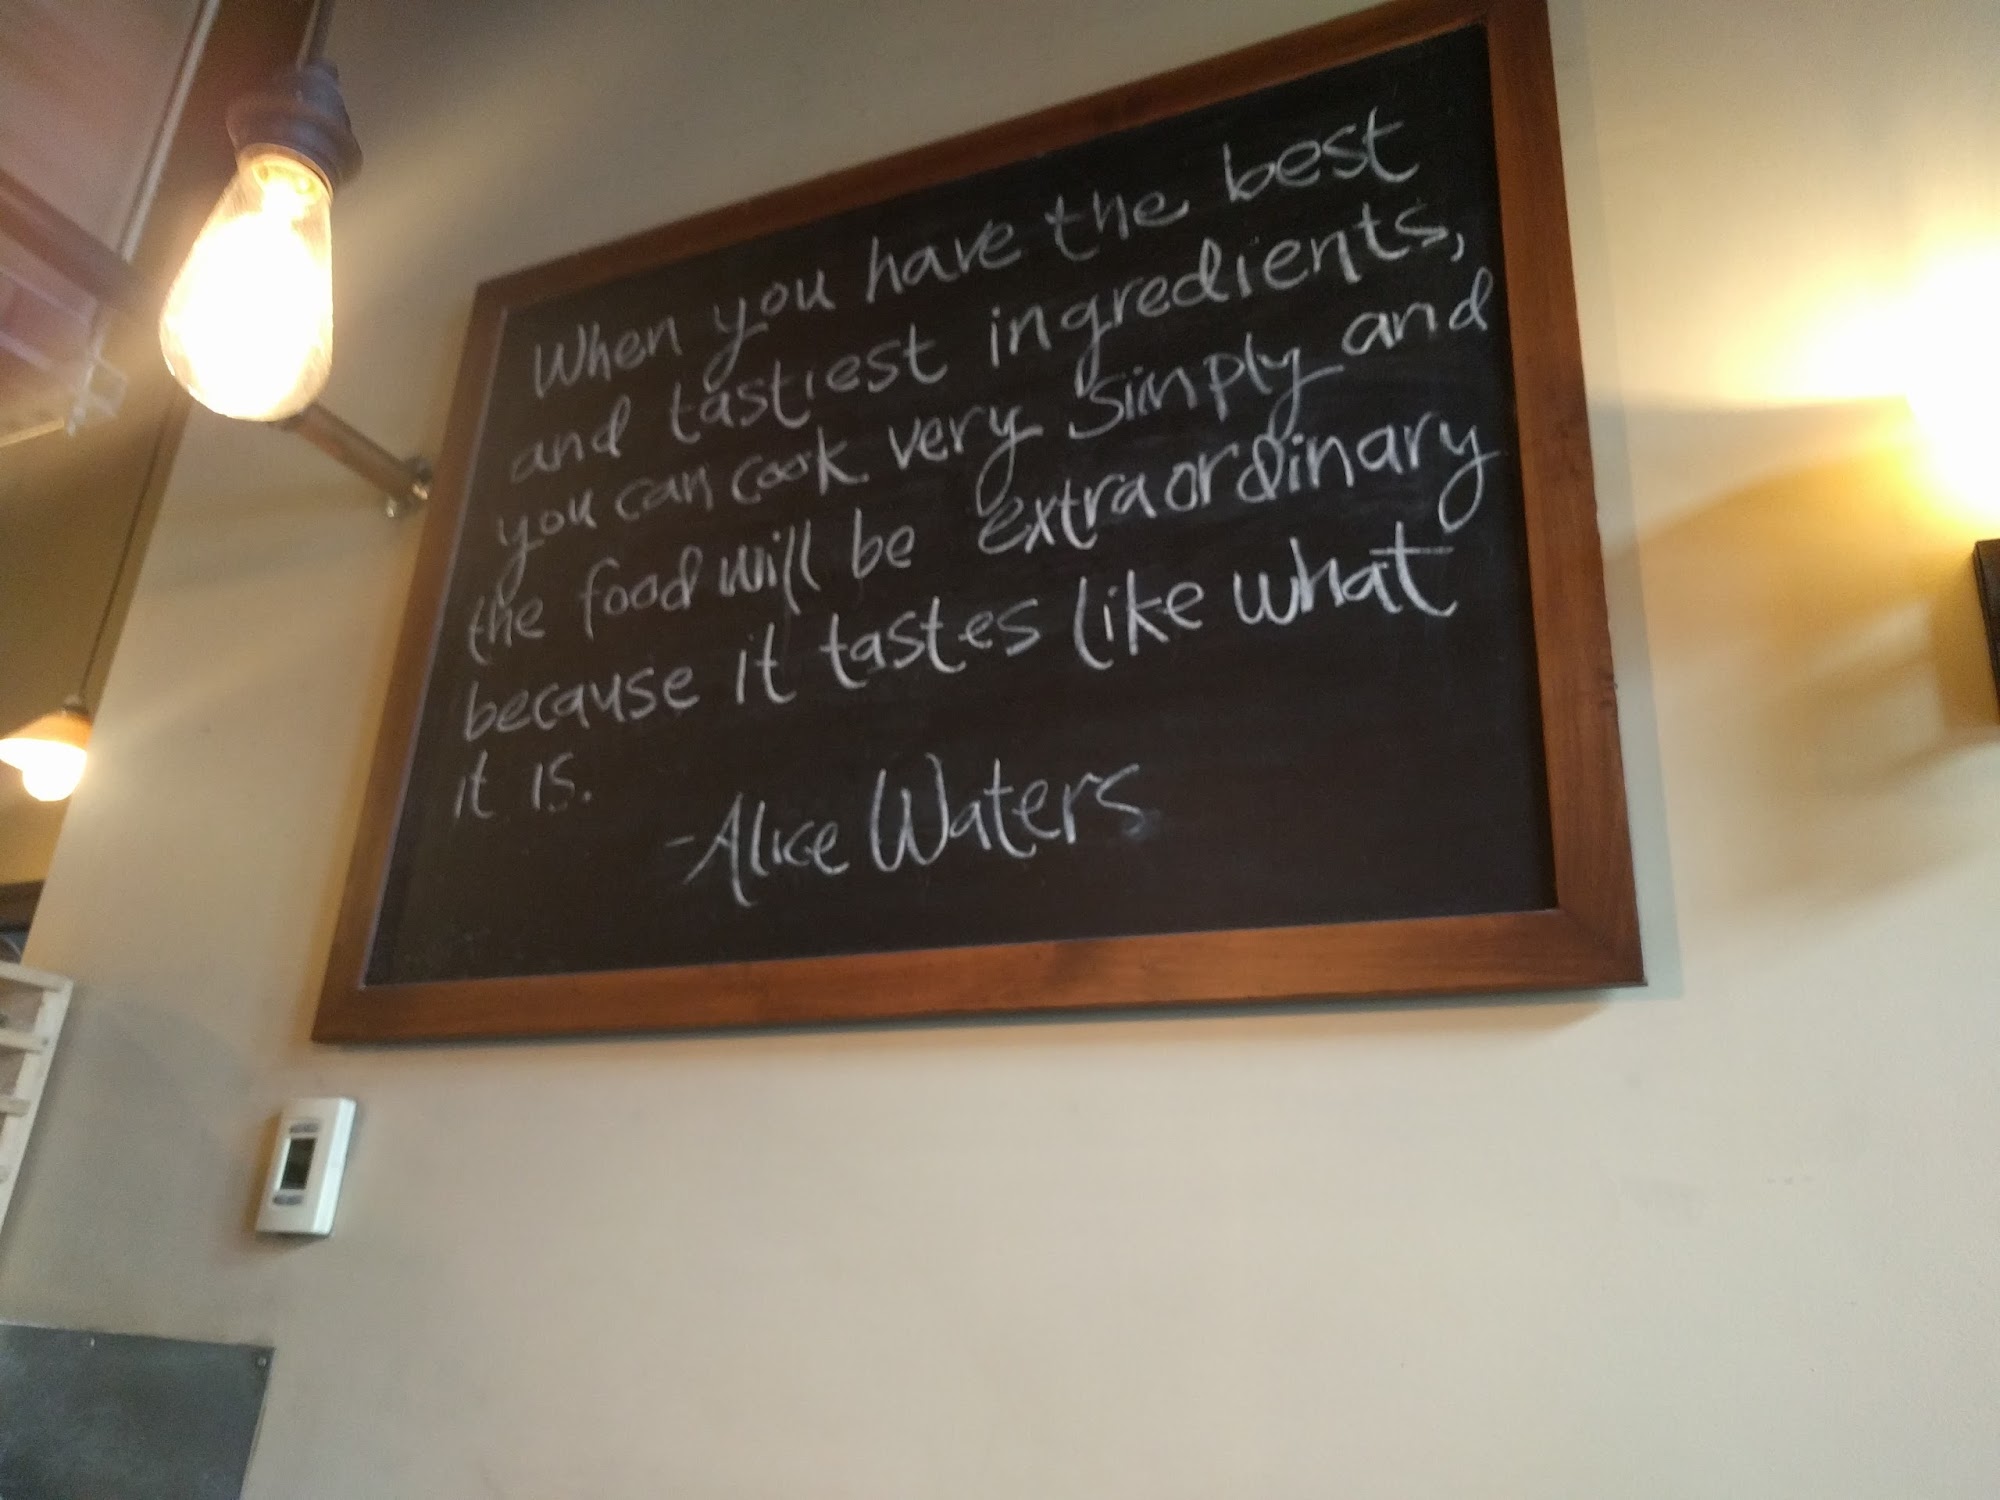 When you have the best
and tastiest ingredients,
you can cook very simply and
the food will be extraordinary
because it tastes like what
it is.
-Alice Waters